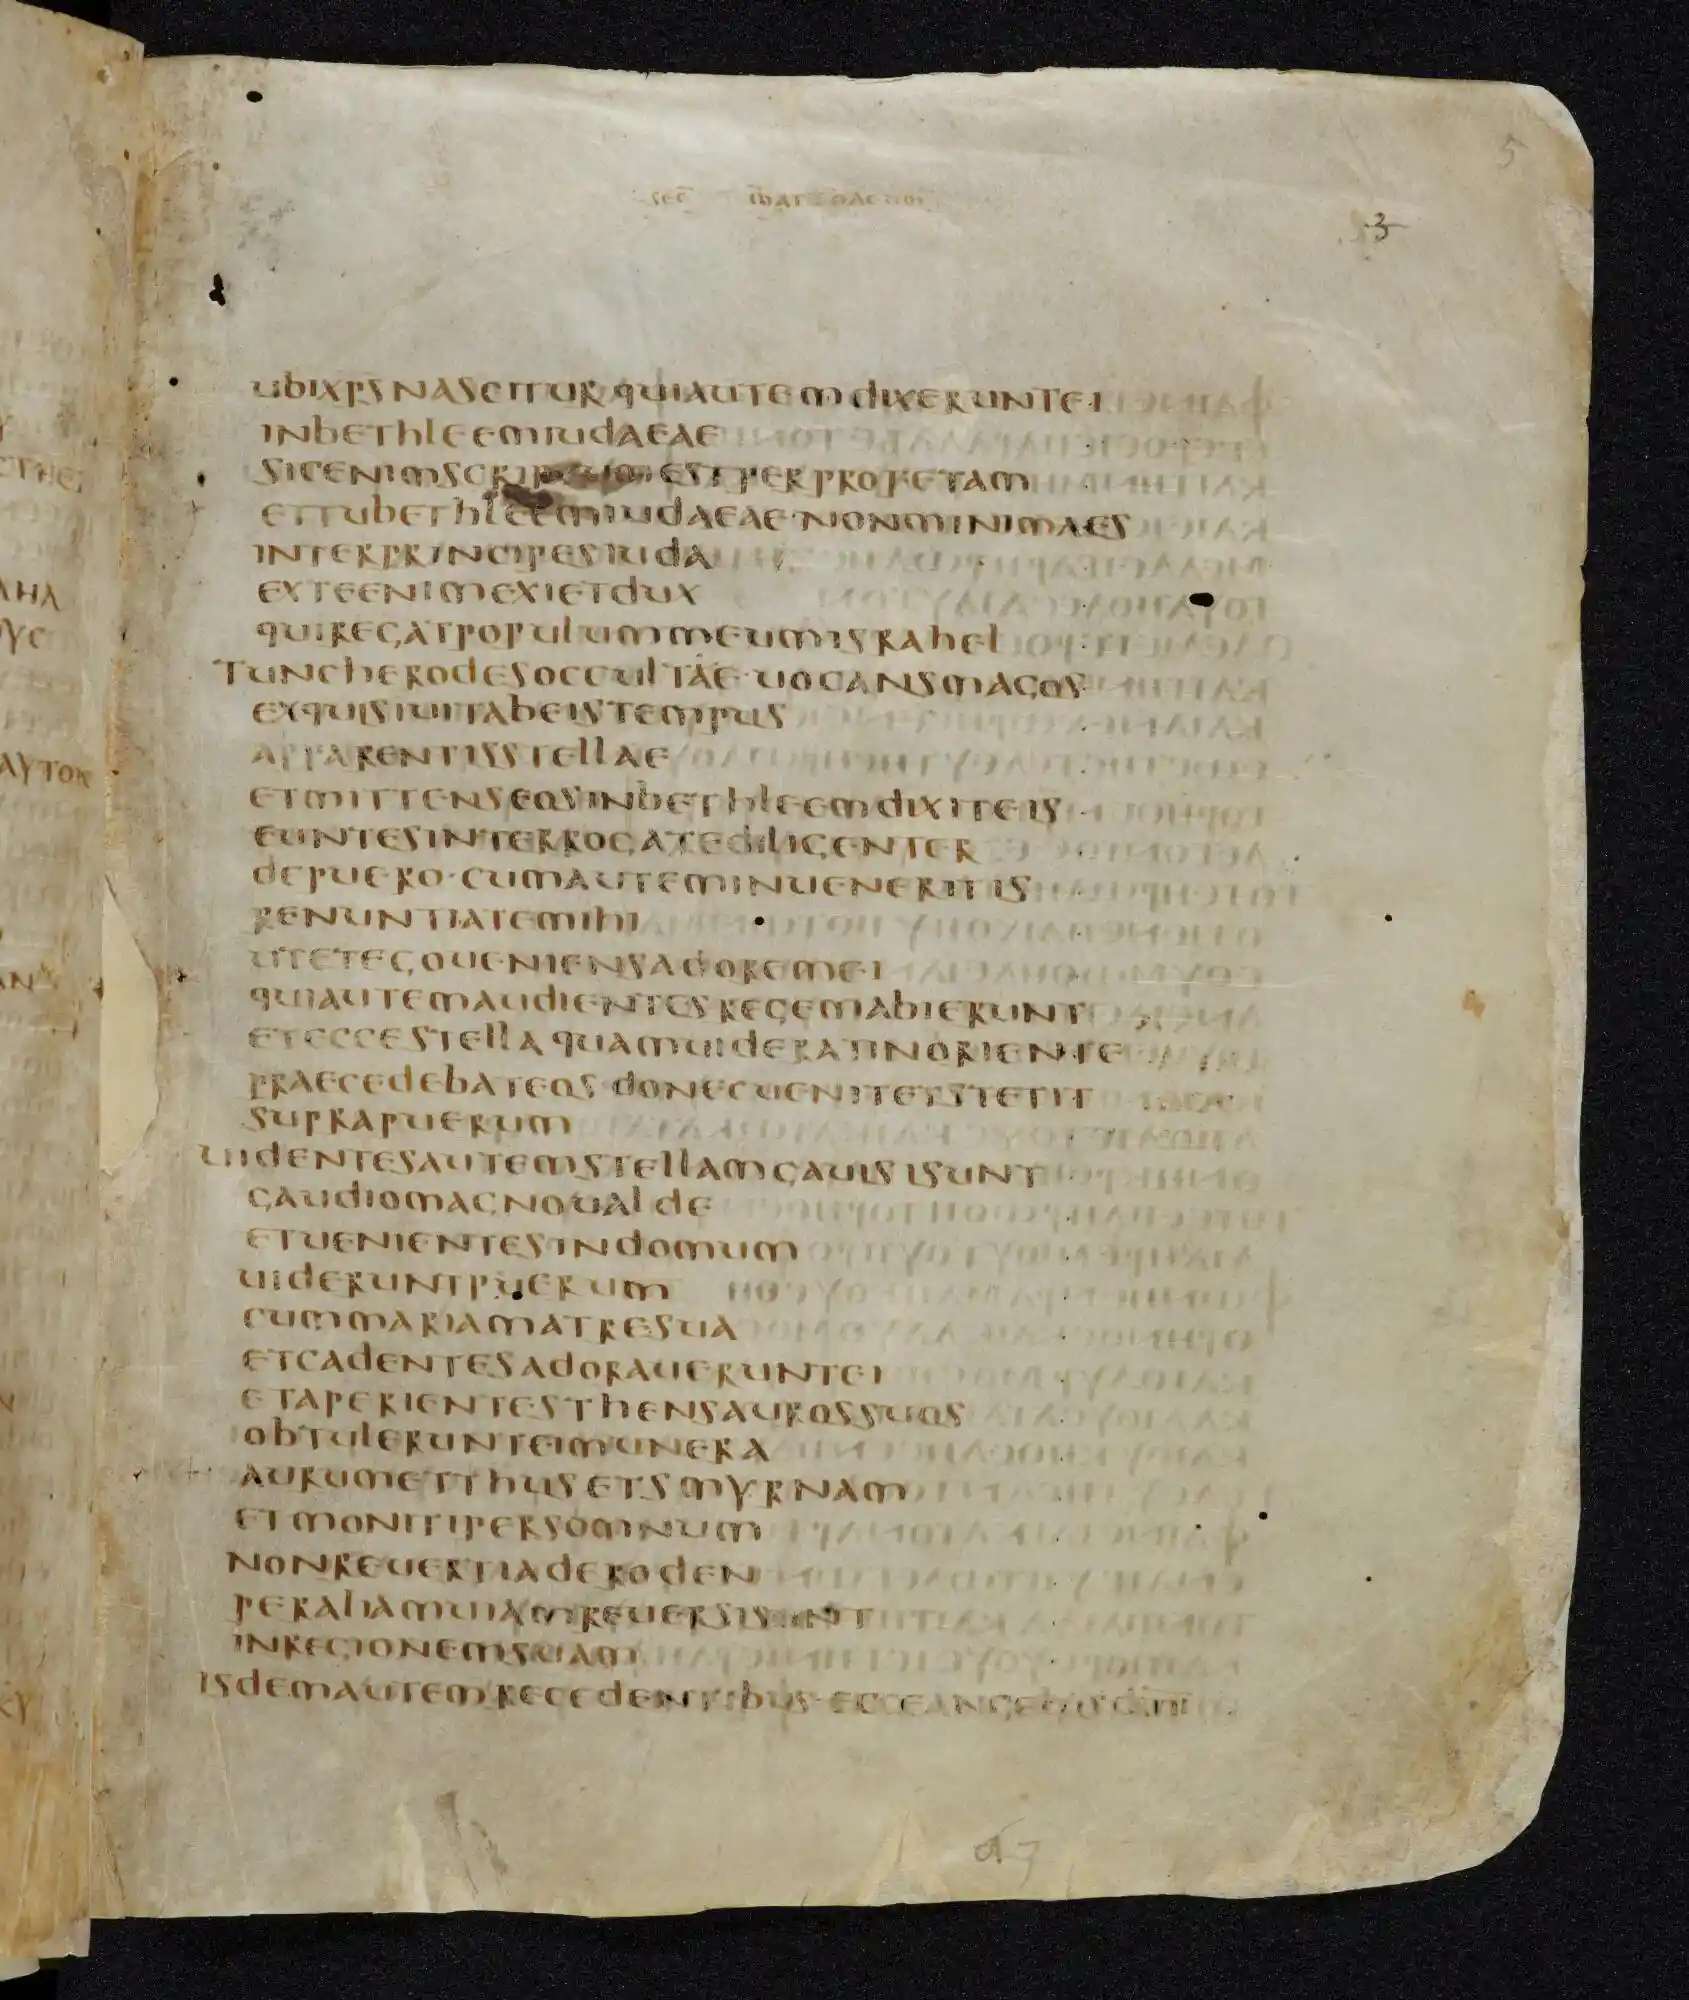 sec mattheum
5
3
ubi xps nascitur qui autem dixerunt ei
in bethleem iudaeae
sic enim scriptum est per profetam
et tu bethleem iudaeae · non minima es
inter principes iuda
ex te enim exiet dux
qui regat populum meum israhel
Tunc herodes occultae · uocans magos
exquisiuit ab eis tempus
apparentis stellae
et mittens eos in bethleem dixit eis
euntes interrogate diligenter
de puero · cum autem inueneritis
renuntiate mihi
ut et ego ueniens adorem ei
qui autem audientes regem abierunt
et ecce stella quam uiderant in oriente
praecedebat eos donec uenit et stetit
supra puerum
Uidentes autem stellam gauisi sunt
gaudio magno ualde
et uenientes in domum
uiderunt puerum
cum maria matre sua
et cadentes adorauerunt ei
et aperientes thensauros suos
obtulerunt ei munera
aurum et thus et smyrnam
et moniti per somnum
non reuerti ad eroden
per aliam uiam reuersi sunt
in regionem suam
Isdem autem recedentibus · ecce angelus dni